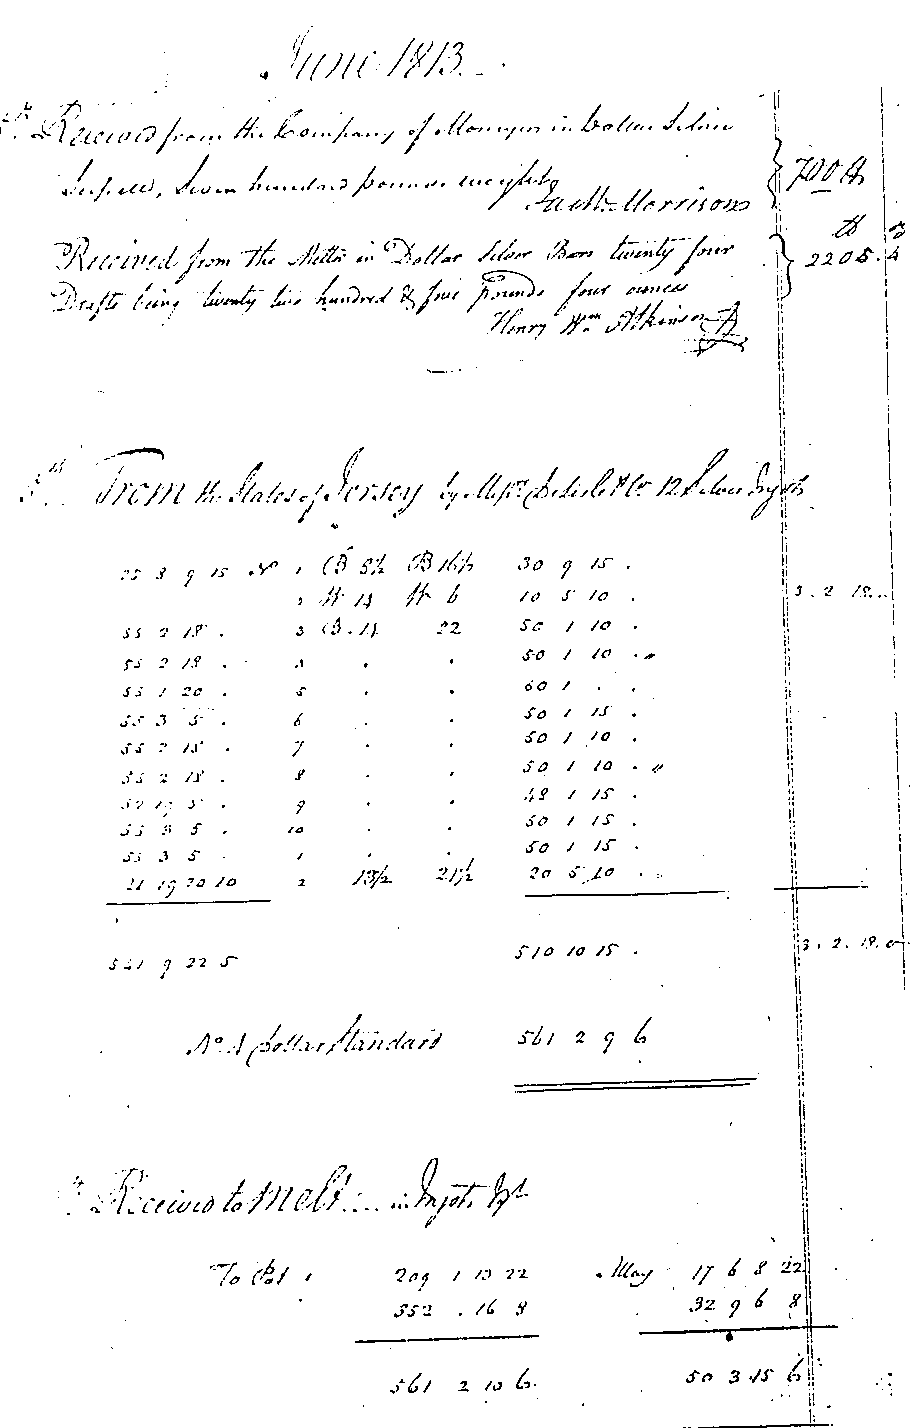 June 1813.
Received from the Company of Moneyers in Dollar Silver
Scissell, Seven hundred pounds weight
700 lb
Jas Wm Morrison
Received from the Melter in Dollar Silver Bars twenty four
lb
2205. 4
Drafts being twenty two hundred & five pounds four ounces
Henry Wm Atkinson
From the States of Jersey by Messrs Delisle & Co 12 Silver Ingots
25 8 9 15 No 1 B 5½ B 16½ 30 9 15 .
2 W 14 W 6 10 5 10 . 3. 2. 18..
55 2 18 . 3 B. 14 22 50 1 10 .
55 2 18 . 4 . . 50 1 10 .
55 1 20 . 5 . . 60 1 . .
55 3 5 . 6 . . 50 1 15 .
55 2 18 . 7 . . 50 1 10 .
55 2 18 . 8 . . 50 1 10 .
52 19 5 . 9 . . 48 1 15 .
55 3 5 . 10 . . 50 1 15 .
55 3 5 . 1 . . 50 1 15 .
21 19 20 10 2 13½ 21½ 20 5 10 .
521 9 22 5 510 10 15 . 3. 2. 18. 0
No. A Dollar Standard 561 2 9 6
Received to Melt .... in Ingots
To Pot 1 209 1 13 22 May 17 6 8 22
352 . 16 8 32 9 6 8
561 2 10 6 50 3 15 6